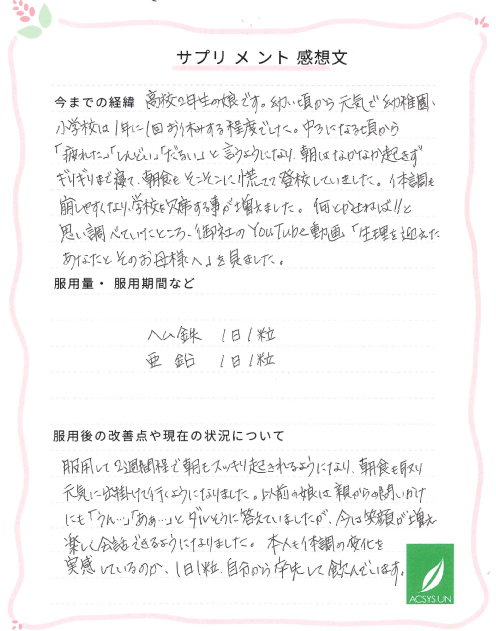 サプリメント 感想文
今までの経緯 高校2年生の娘です。幼い頃から元気で幼稚園、
小学校は1年に1回お休みする程度でした。中3になる頃から
「疲れた」「しんどい」「だるい」と言うようになり、朝はなかなか起きず
ギリギリまで寝て、朝食もそこそこに慌てて登校していました。体調も
崩しやすくなり、学校を欠席する事が増えました。何とかせねば!!と
思い調べていたところ、御社のYouTube動画「生理を迎えた
あなたとそのお母様へ」を見ました。
服用量・服用期間など
ヘム鉄 1日1粒
亜鉛 1日1粒
服用後の改善点や現在の状況について
服用して2週間程で朝もスッキリ起きれるようになり、朝食も取り
元気に出掛けて行くようになりました。以前の娘は親からの問いかけ
にも「うん…」「あぁ…」とダルそうに答えていましたが、今は笑顔が増え
楽しく会話できるようになりました。本人も体調の変化を
実感しているのか、1日1粒、自分から率先して飲んでいます。
ACSYS UN